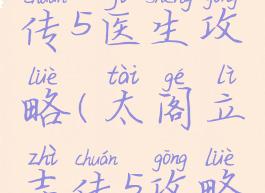 chuán jú shēng gōng
传5医生攻
lüè tài gé lì
略(太阁立
zhì chuán gōng lüè
志传5攻略